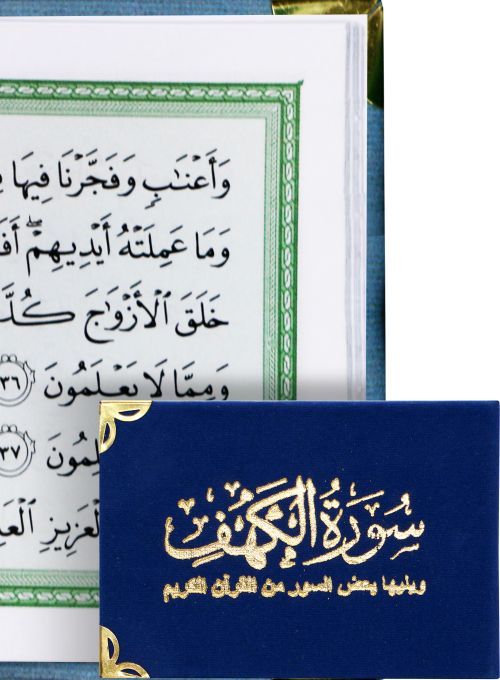 وَأَعْنَٰبٍ وَفَجَّرْنَا فِيهَا
وَمَا عَمِلَتْهُ أَيْدِيهِمْ ۖ
خَلَقَ ٱلْأَزْوَٰجَ
وَمِمَّا لَا يَعْلَمُونَ ٣٦
٣٧
ٱلْعَزِيزِ
سُورَةُ الْكَهْفِ
ويليها بعض السور من القرآن الكريم